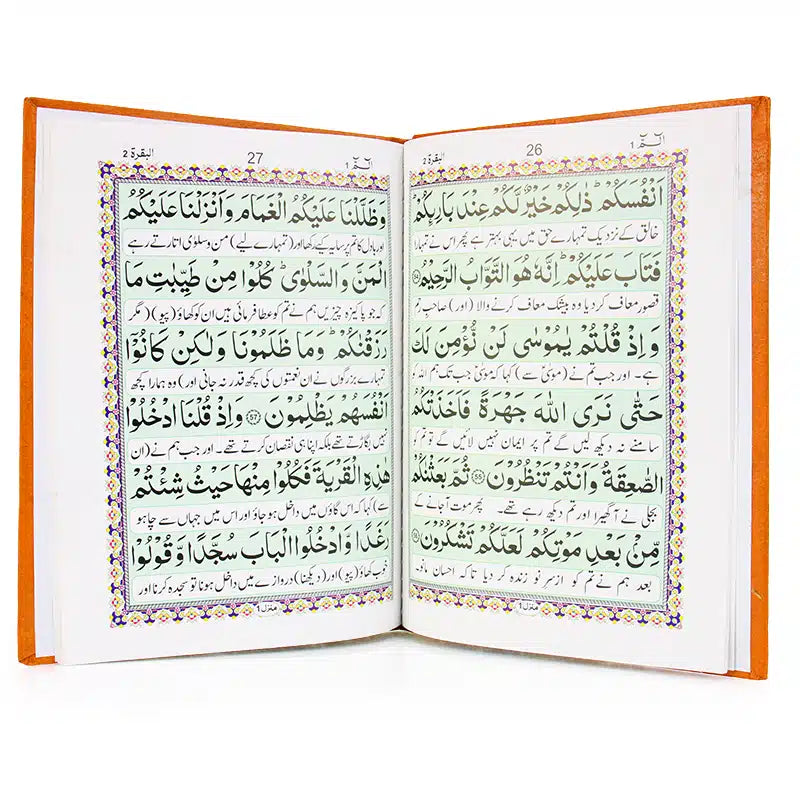 الٓمّٓ ١
26
البقرة ٢
اَنْفُسَكُمْ ؕ ذٰلِكُمْ خَیْرٌ لَّكُمْ عِنْدَ بَارِىِٕكُمْ ؕ
خالق کے نزدیک تمہارے حق میں یہی بہتر ہے پھر اس نے تمہارا
فَتَابَ عَلَیْكُمْ ؕ اِنَّهٗ هُوَ التَّوَّابُ الرَّحِیْمُ 54
قصور معاف کر دیا وہ بیشک معاف کرنے والا (اور) صاحب رحم
وَ اِذْ قُلْتُمْ یٰمُوْسٰی لَنْ نُّؤْمِنَ لَكَ
ہے۔ اور جب تم نے (موسیٰ سے) کہا کہ موسیٰ جب تک ہم اللہ کو
حَتّٰی نَرَی اللّٰهَ جَهْرَةً فَاَخَذَتْكُمُ
سامنے نہ دیکھ لیں گے تم پر ایمان نہیں لائیں گے تو تم کو
الصّٰعِقَةُ وَ اَنْتُمْ تَنْظُرُوْنَ 55 ثُمَّ بَعَثْنٰكُمْ
بجلی نے آ گھیرا اور تم دیکھ رہے تھے۔ پھر موت آ جانے کے
مِّنْۢ بَعْدِ مَوْتِكُمْ لَعَلَّكُمْ تَشْكُرُوْنَ 56
بعد ہم نے تم کو ازسر نو زندہ کر دیا تاکہ احسان مانو۔
منزل 1
الٓمّٓ ١
27
البقرة ٢
وَ ظَلَّلْنَا عَلَیْكُمُ الْغَمَامَ وَ اَنْزَلْنَا عَلَیْكُمُ
اور بادل کا تم پر سایہ کیے رکھا اور (تمہارے لیے) من و سلویٰ اتارتے رہے
الْمَنَّ وَ السَّلْوٰی ؕ كُلُوْا مِنْ طَیِّبٰتِ مَا
کہ جو پاکیزہ چیزیں ہم نے تم کو عطا فرمائی ہیں ان کو کھاؤ (پیو) مگر
رَزَقْنٰكُمْ ؕ وَ مَا ظَلَمُوْنَا وَ لٰكِنْ كَانُوْۤا
تمہارے بزرگوں نے ان نعمتوں کی کچھ قدر نہ جانی اور) وہ ہمارا کچھ
اَنْفُسَهُمْ یَظْلِمُوْنَ 57 وَ اِذْ قُلْنَا ادْخُلُوْا
نہیں بگاڑتے تھے بلکہ اپنا ہی نقصان کرتے تھے۔ اور جب ہم نے (ان
هٰذِهِ الْقَرْیَةَ فَكُلُوْا مِنْهَا حَیْثُ شِئْتُمْ
سے) کہا کہ اس گاؤں میں داخل ہو جاؤ اور اس میں جہاں سے چاہو
رَغَدًا وَّ ادْخُلُوا الْبَابَ سُجَّدًا وَّ قُوْلُوْا
خوب کھاؤ (پیو) اور (دیکھنا) دروازے میں داخل ہونا تو سجدہ کرنا اور
منزل 1